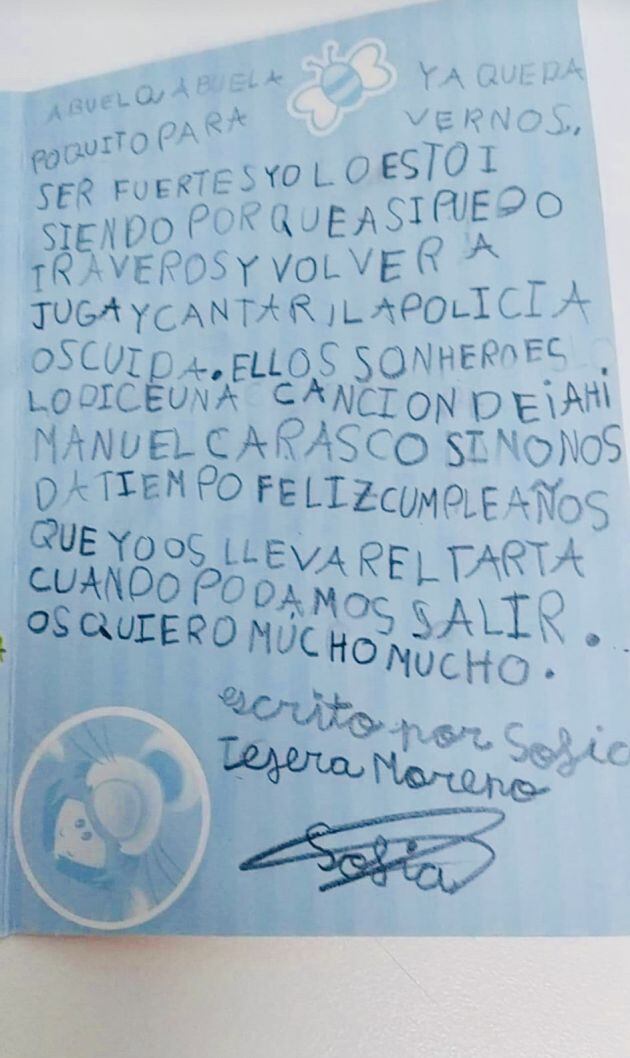 ABUELO, ABUELA YA QUEDA
POQUITO PARA VERNOS..
SER FUERTES YO LO ESTOI
SIENDO PORQUE ASI PUEDO
IR A VEROS Y VOLVER A
JUGA Y CANTAR, LA POLICIA
OS CUIDA. ELLOS SON HEROES
LO DICE UNA CANCION DE
MANUEL CARASCO SI NO NOS
DA TIEMPO FELIZ CUMPLEAÑOS
QUE YO OS LLEVARE L TARTA
CUANDO PODAMOS SALIR.
OS QUIERO MUCHO MUCHO.
escrito por Sofia
Tejera Moreno
Sofia